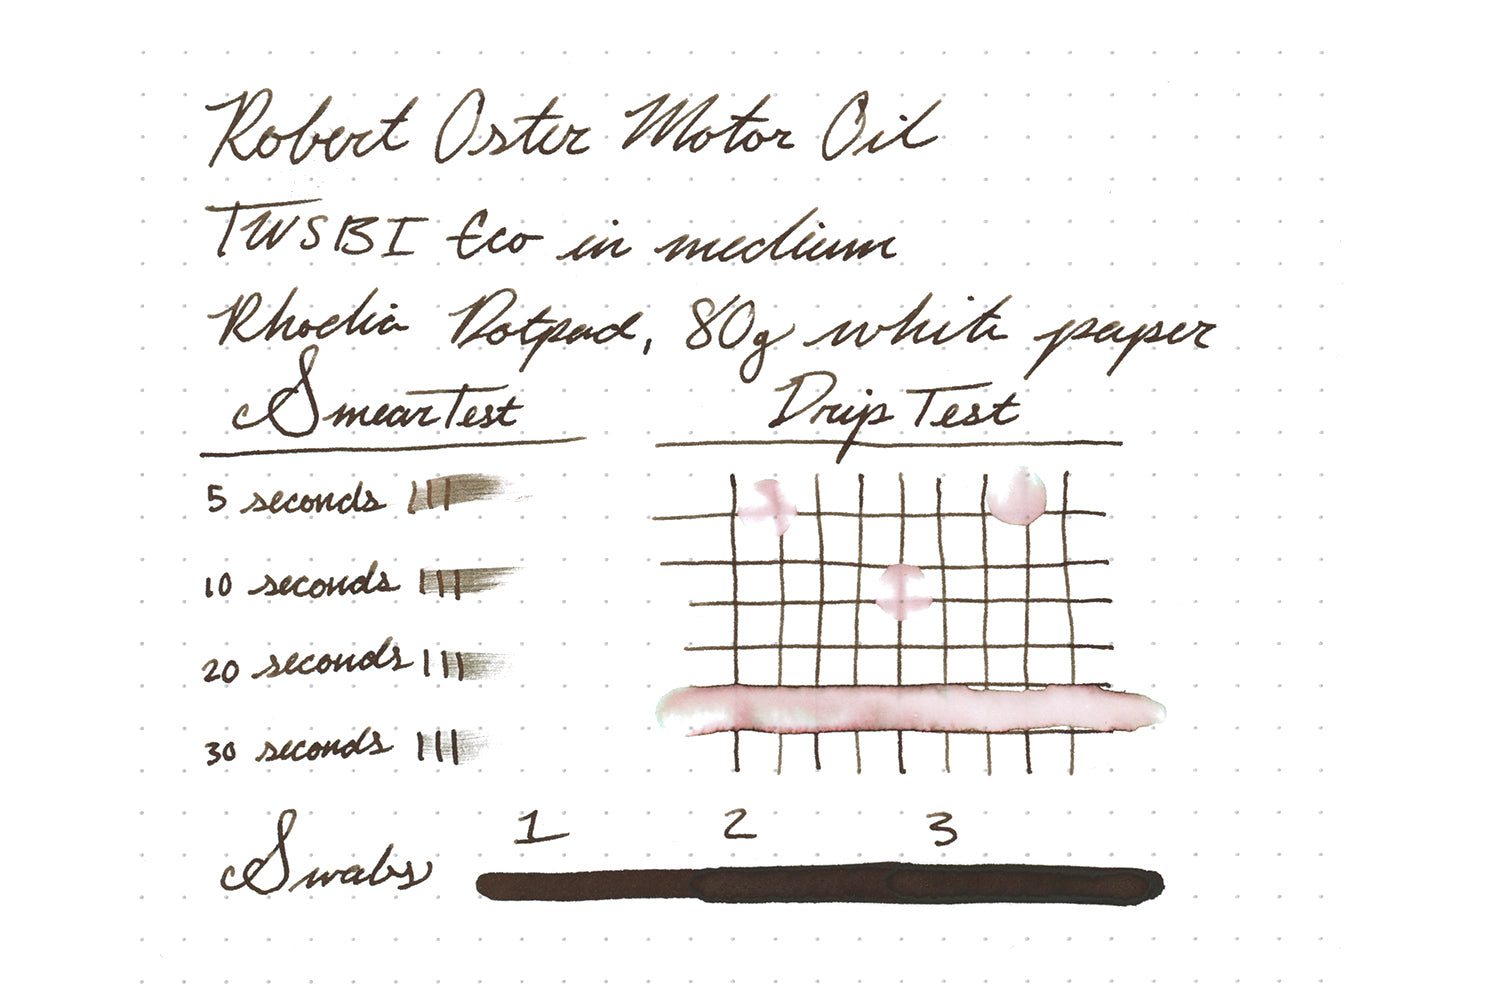 Robert Oster Motor Oil
TWSBI Eco in medium
Rhodia Dotpad, 80g white paper
Smear Test
5 seconds
10 seconds
20 seconds
30 seconds
Drip Test
Swabs
1 2 3